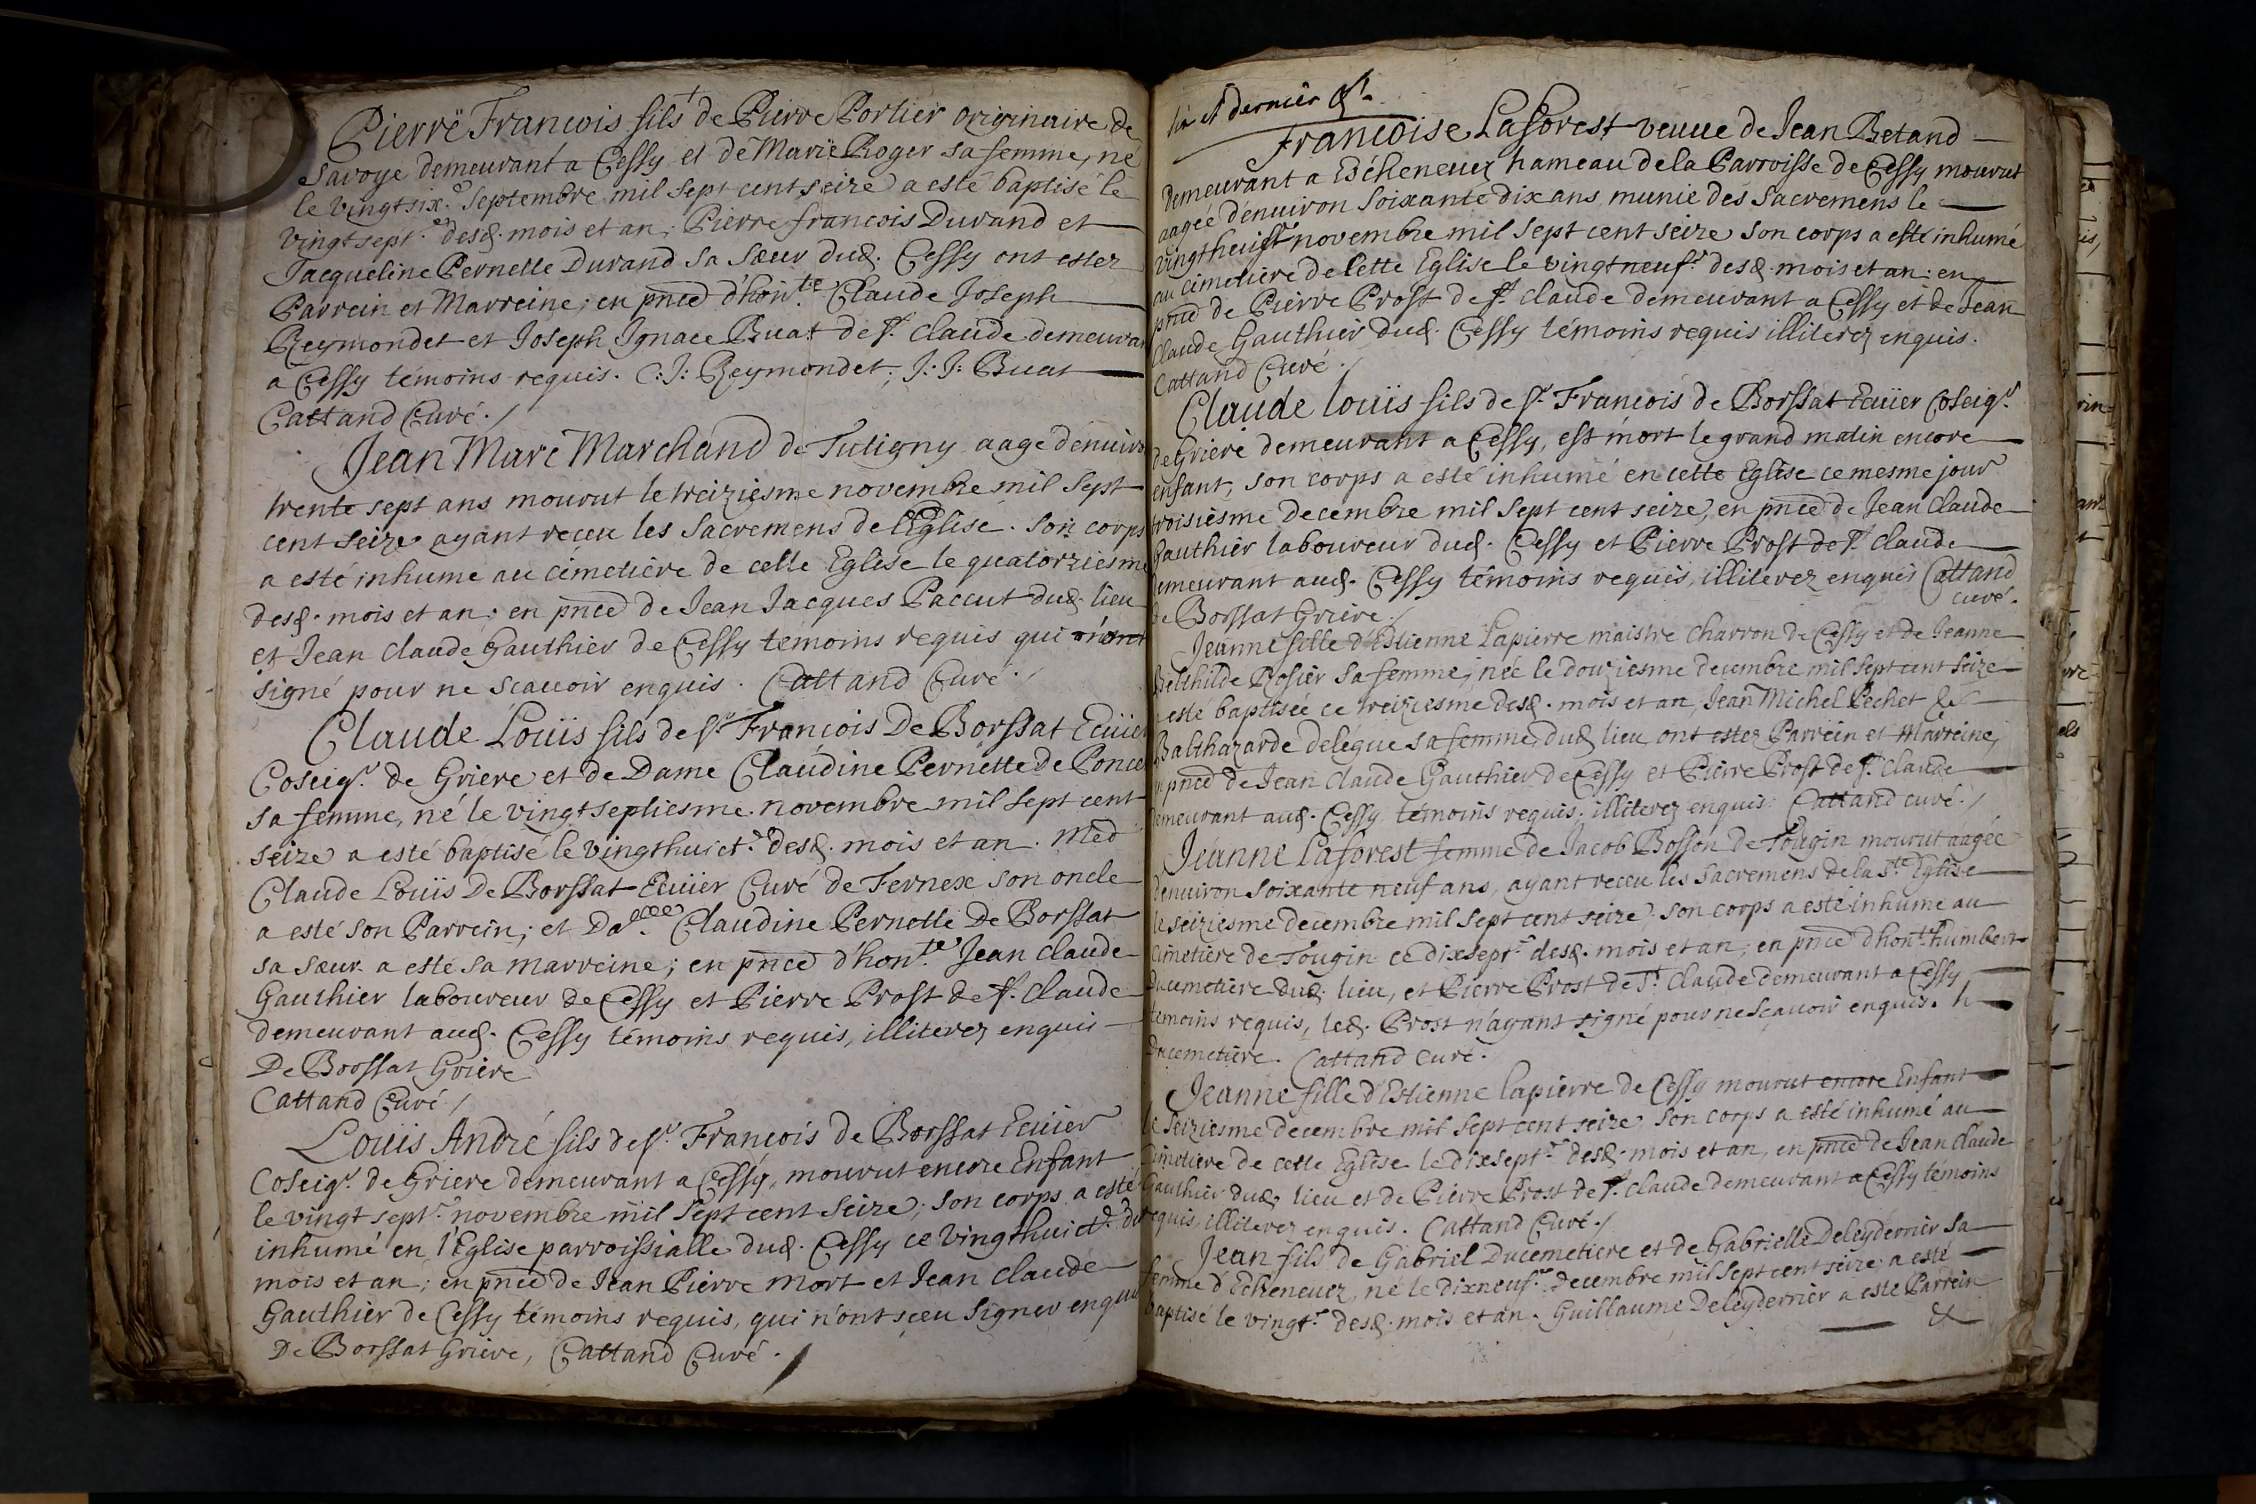 Pierre Francois fils de Pierre Portier originaire de
Savoye demeurant a Cessy et de Marie Roger sa femme, né
le vingtsix.e Septembre mil sept cent seize a esté baptisé le
vingtsept.e desd. mois et an; Pierre francois Durand et
Jacqueline Pernette Durand sa sœur dud. Cessy ont estez
Parrein et Marreine; en pnce d'hon.te Claude Joseph
Reymondet et Joseph Ignace Buat de st. Claude demeuran
a Cessy témoins requis. C: J: Reymondet; J: J: Buat
Cattand Curé./
Jean Marc Marchand de Tutigny aage d'enuiro
trente sept ans mourut le treiziesme novembre mil sept
cent seize ayant receu les Sacremens de l'Eglise. son corps
a esté inhume au cimetière de cette Eglise le quatorziesme
desd. mois et an; en pnce de Jean Jacques Paccut dud. lieu
et Jean claude Gauthier de Cessy temoins requis qui n'ont
signé pour ne scauoir enquis. Cattand Curé./
Claude Loüis fils de sr. François De Borssat Ecüie
Coseigr. de Griere et de Dame Claudine Pernette de Ponce
sa femme, né le vingtseptiesme novembre mil sept cent
seize a esté baptisé le vingthuict.e desd. mois et an. Med
Claude Loüis De Borssat Ecüier Curé de Fernex son oncle
a esté son Parrein; et Da.elle Claudine Pernette De Borssat
sa sœur a esté sa marreine; en pnce d'hon.te Jean claude
Gauthier laboureur de Cessy et Pierre Prost de st. claude
demeurant aud. Cessy témoins requis, illiterez enquis
De Borssat Griere
Cattand Curé /
Loüis André fils de sr. François de Borssat Ecüier
Coseigr. de Griere demeurant a Cessy, mourut encore Enfant
le vingt sept.e novembre mil sept cent seize; son corps a esté
inhumé en l'Eglise parroissialle dud. Cessy ce vingthuict.e des
mois et an; en pnce de Jean Pierre Mort et Jean claude
Gauthier de Cessy témoins requis, qui n'ont sceu signer enquis
De Borssat Griere, Cattand Curé.
et dernier
Francoise Laforest veuue de Jean Betand
demeurant a Echeneuex hameau de la Parroisse de Cessy mourut
aagée d'enuiron soixante dix ans munie des Sacremens le
vingthuict novembre mil sept cent seize son corps a esté inhumé
au cimetière de Cette Eglise le vingtneuf.e desd. mois et an; en
pnce de Pierre Prost de st. claude demeurant a Cessy et de Jean
Claude Gauthier dud. Cessy témoins requis illiterez enquis.
Cattand Curé./
Claude loüis fils de sr. François de Borssat Ecüier Coseigr.
de Griere demeurant a Cessy, est mort le grand matin encore
enfant, son corps a esté inhumé en cette Eglise ce mesme jour
troisiesme decembre mil sept cent seize, en pnce de Jean Claude
Gauthier laboureur dud. Cessy et Pierre Prost de st. claude
demeurant aud. Cessy témoins requis, illiterez enquis Cattand
curé.
de Borssat Griere /
Jeanne fille d'Estienne Lapierre maistre charron de Cessy et de Jeanne
Rosier sa femme; née le douziesme decembre mil sept cent seize
esté baptisée ce treiziesme desd. mois et an, Jean Michel Pechet &
Balthazarde delegue sa femme, dud lieu ont estez Parrein et Marreine,
pnce de Jean claude Gauthier de Cessy et Pierre Prost de st. Claude
demeurant aud. Cessy témoins requis; illiterez enquis. Cattand curé./
Jeanne Laforest femme de Jacob Bosson de Tougin mourut aagée
d'enuiron soixante neuf ans, ayant receu les Sacremens de la Ste. Eglise
le seiziesme decembre mil sept cent seize son corps a esté inhume au
cimetiere de Tougin ce dixsept.e desd. mois et an; en pnce d'hon.te humbert
Ducimetiere dud. lieu, et Pierre Prost de St. Claude demeurant a Cessy
temoins requis, led. Prost n'ayant signé pour ne scauoir enquis. h
Ducemetiere. Cattand Curé.
Jeanne fille d'Estienne lapierre de Cessy mourut encore Enfant
le seiziesme decembre mil sept cent seize son corps a esté inhumé au
Cimetiere de cette Eglise le dixsept.e desd. mois et an, en pnce de Jean claude
Gauthier dud. lieu et de Pierre Prost de st. claude demeurant a Cessy témoins
requis, illiterez enquis. Cattand Curé./
Jean fils de Gabriel Ducemetiere et de Gabrielle Deleyderrier sa
femme d'Echeneuez, né le dixneuf.e decembre mil sept cent seize a esté
baptisé le vingt.e desd. mois et an. Guillaume Deleyderrier a esté Parrein
&